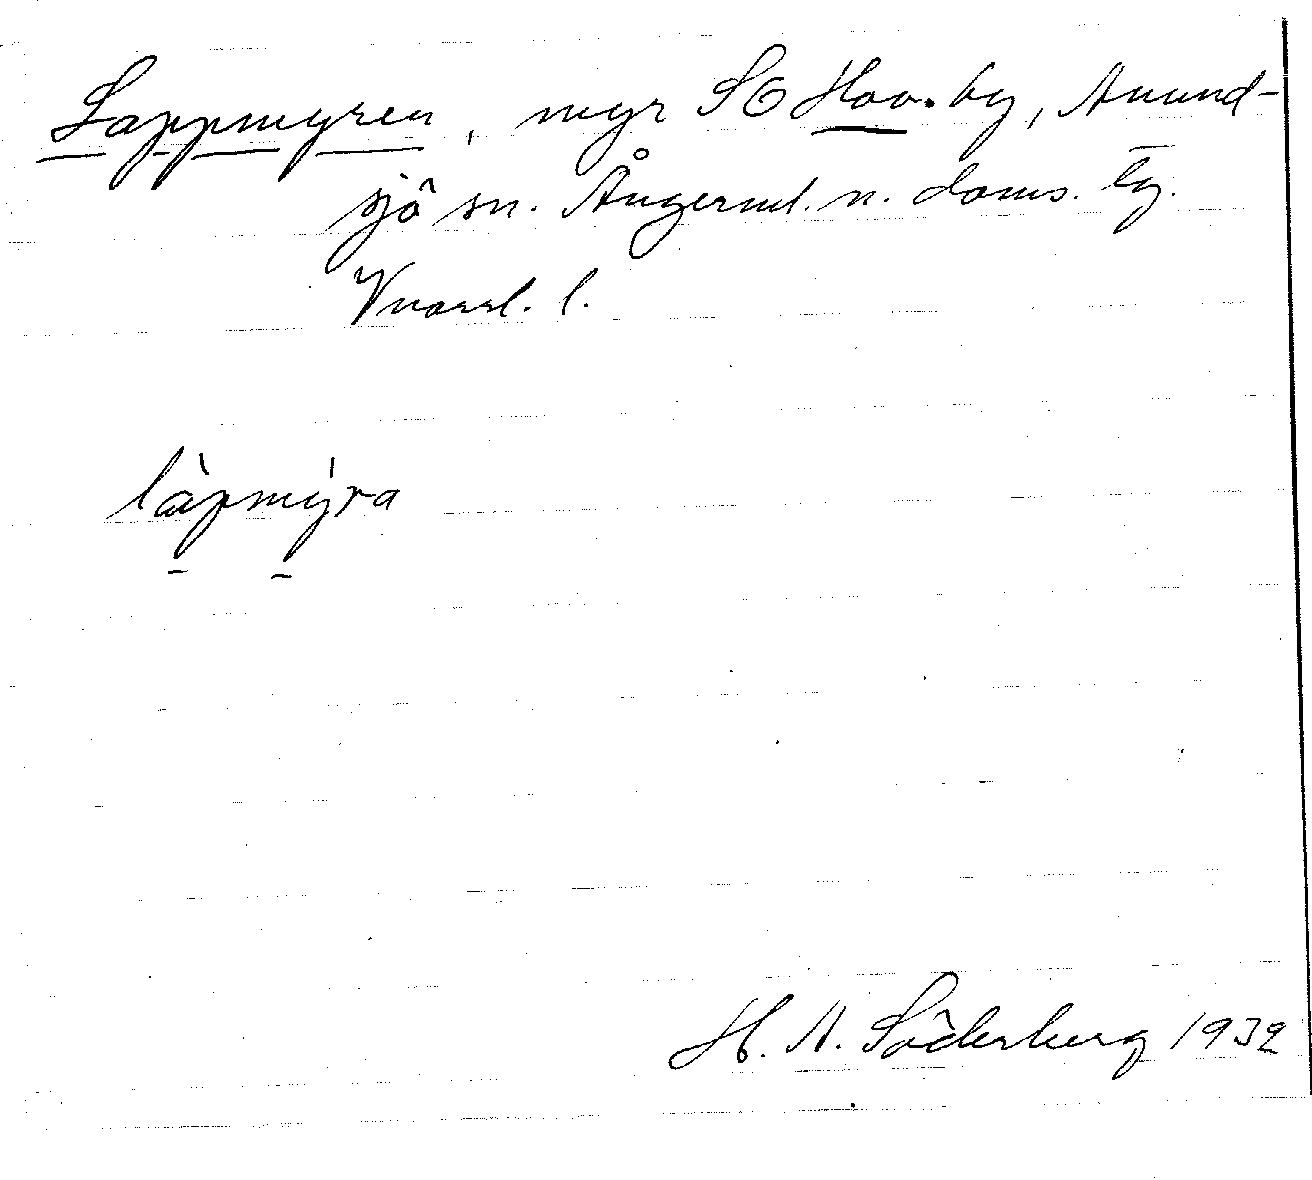 Lappmyren, myr SO Hoo. by, Anund-
sjö sn. Ångerml. n. doms. tg.
Västernorrl. l.
làpmýra
H. A. Söderberg 1932